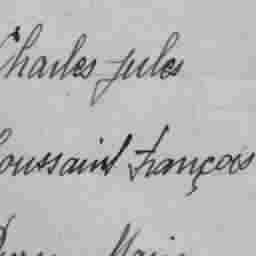 Charles Jules
Toussaint François